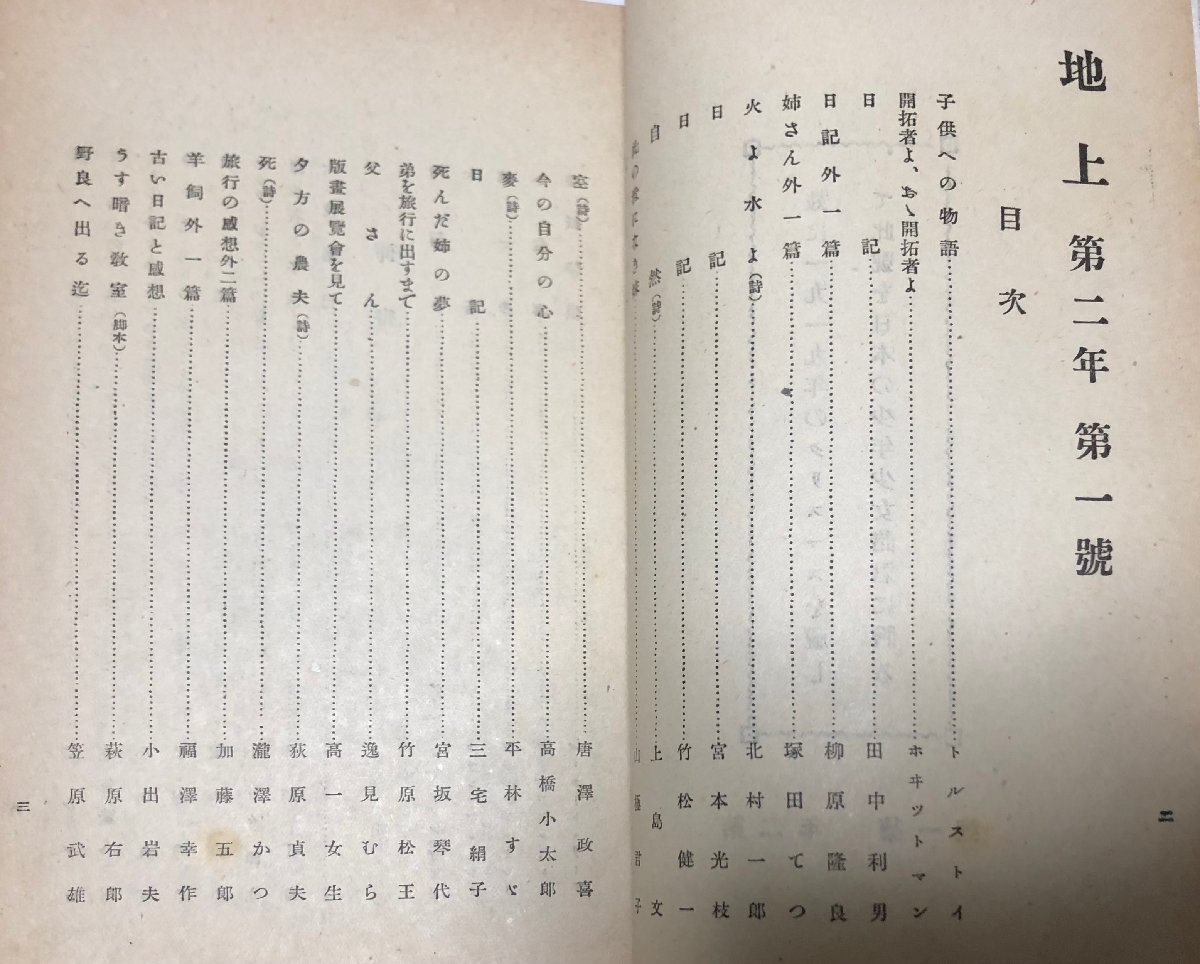 地上 第二年 第一號
目次
子供への物語…………トルストイ
開拓者よ、おゝ開拓者よ…………ホヰツトマン
日記…………田中利男
日記外一篇…………柳原隆良
姉さん外一篇…………塚田てつ
火よ水よ(詩)…………北村一郎
日記…………宮本光枝
日記…………竹松健一
自然(詩)…………上島文
君子
二
室(詩)…………唐澤政喜
今の自分の心…………高橋小太郎
麥(詩)…………平林すゞ
日記…………三宅絹子
死んだ姉の夢…………宮坂琴代
弟を旅行に出すまで…………竹原松王
父さん…………逸見むら
版畫展覽會を見て…………高一女生
夕方の農夫(詩)…………荻原貞夫
死(詩)…………瀧澤かつ
旅行の感想外二篇…………加藤五郎
羊飼外一篇…………福澤幸作
古い日記と感想…………小出岩夫
うす暗き教室(脚本)…………萩原右郎
野良へ出る迄…………笠原武雄
三